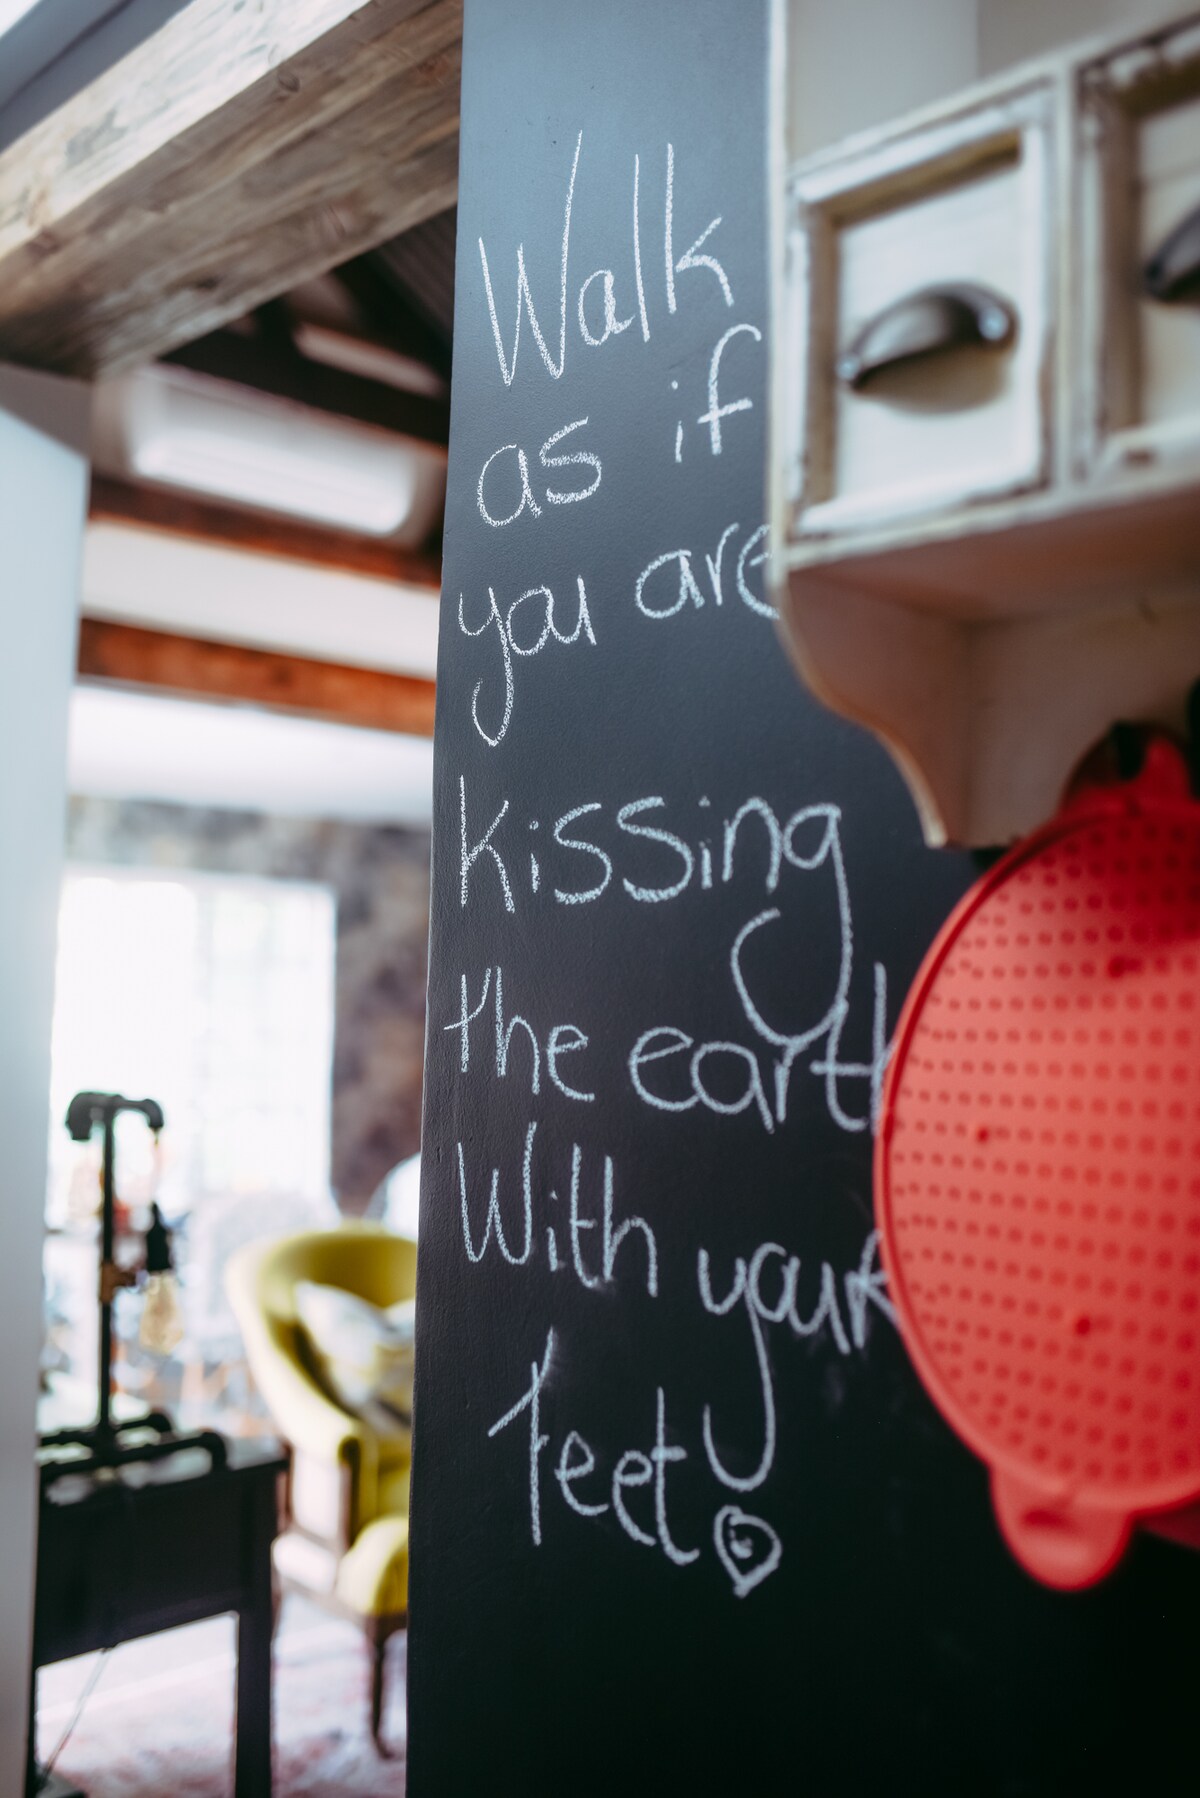 Walk
as if
you are
kissing
the earth
With your
feet